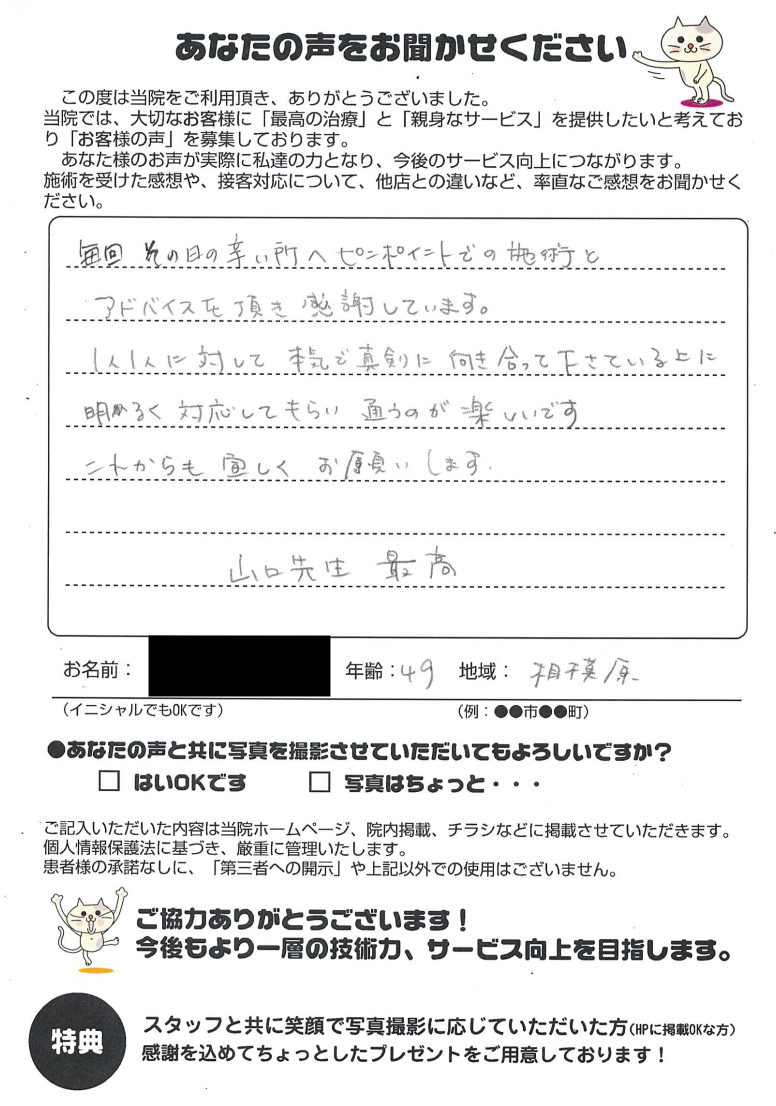 あなたの声をお聞かせください
この度は当院をご利用頂き、ありがとうございました。
当院では、大切なお客様に「最高の治療」と「親身なサービス」を提供したいと考えてお
り「お客様の声」を募集しております。
あなた様のお声が実際に私達の力となり、今後のサービス向上につながります。
施術を受けた感想や、接客対応について、他店との違いなど、率直なご感想をお聞かせく
ださい。
毎回 その日の辛い所へピンポイントでの施術と
アドバイスを頂き 感謝しています。
1人1人に対して 本気で真剣に 向き合って下さている上に
明かるく 対応してもらい 通うのが 楽しいです
これからも 宜しく お願いします.
山口先生 最高
お名前: 年齢:49 地域: 相模原
(イニシャルでもOKです) (例:●●市●●町)
●あなたの声と共に写真を撮影させていただいてもよろしいですか?
□ はいOKです □ 写真はちょっと・・・
ご記入いただいた内容は当院ホームページ、院内掲載、チラシなどに掲載させていただきます。
個人情報保護法に基づき、厳重に管理いたします。
患者様の承諾なしに、「第三者への開示」や上記以外での使用はございません。
ご協力ありがとうございます!
今後もより一層の技術力、サービス向上を目指します。
特典
スタッフと共に笑顔で写真撮影に応じていただいた方(HPに掲載OKな方)
感謝を込めてちょっとしたプレゼントをご用意しております!